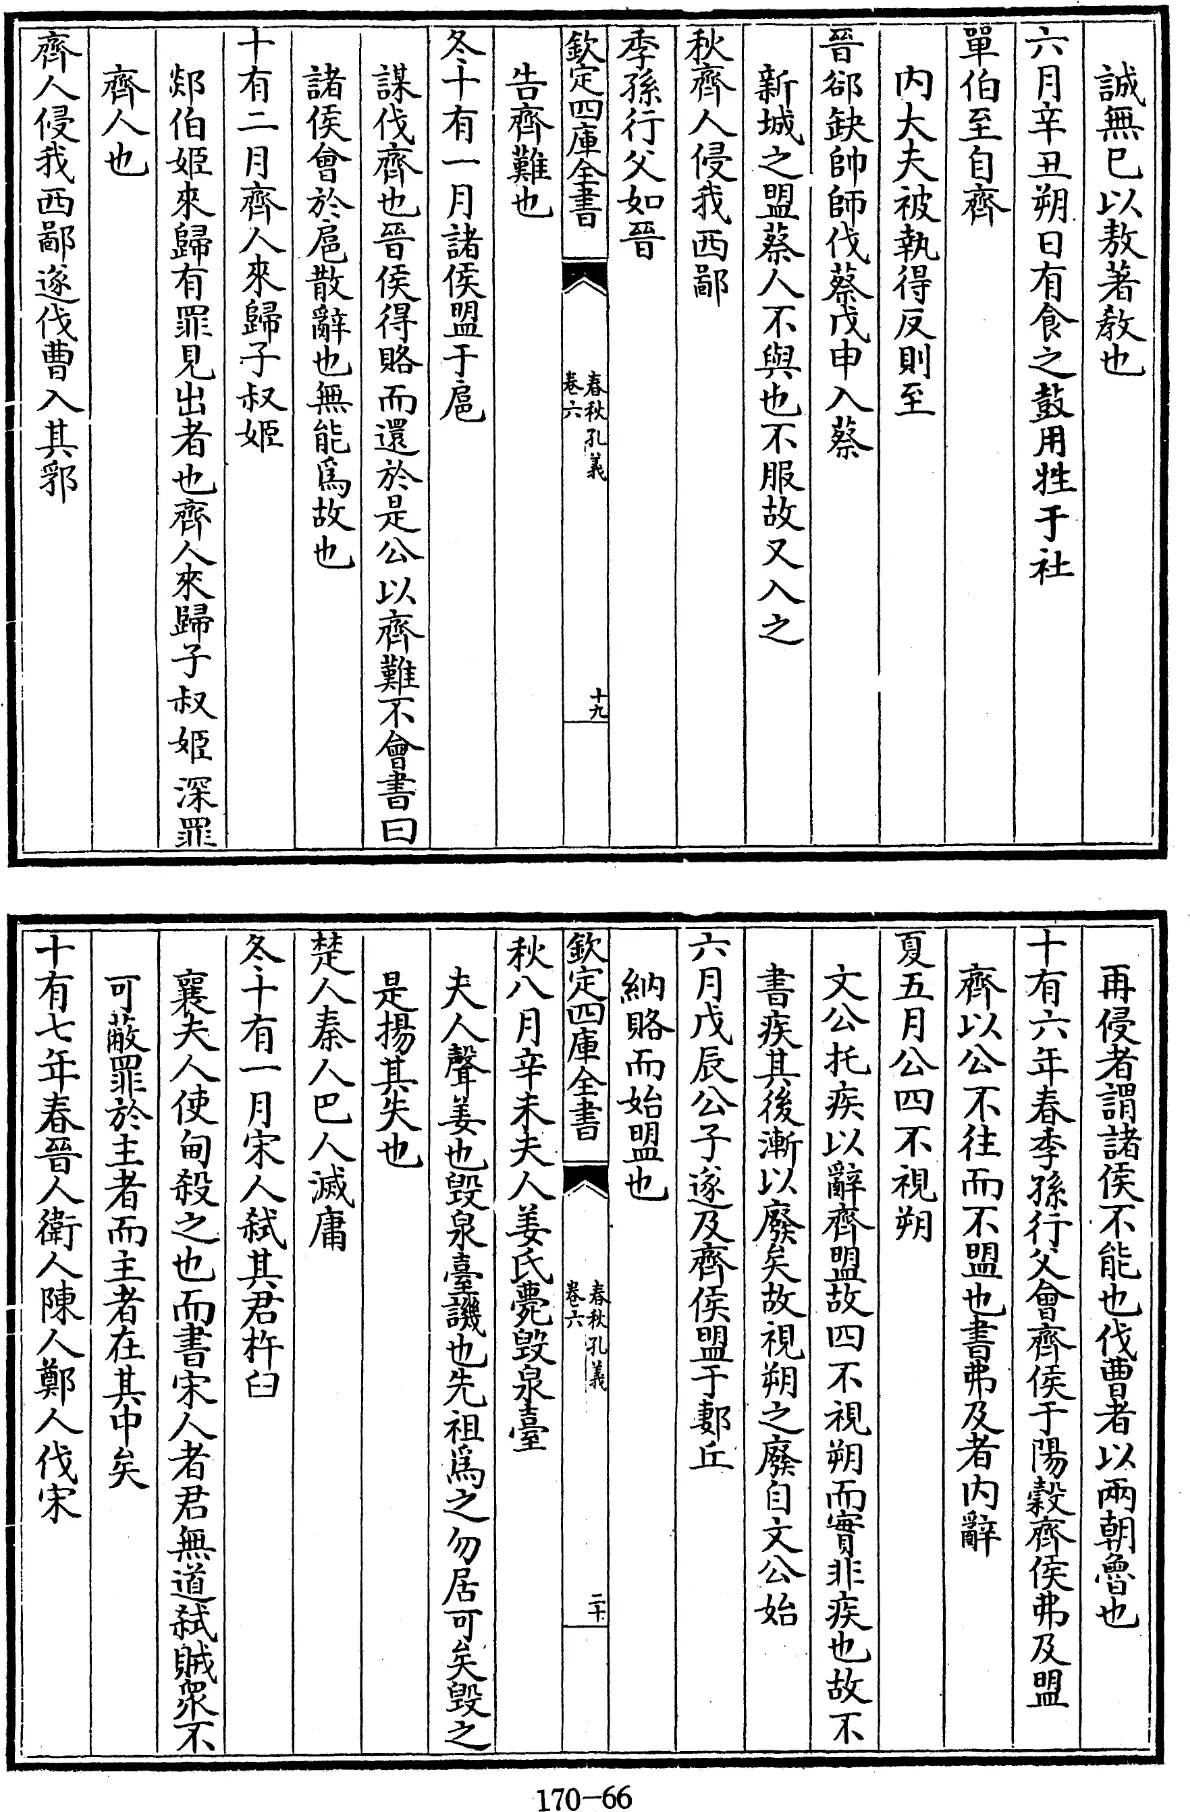 誠無已以敖著教也
六月辛丑朔日有食之鼓用牲于社
單伯至自齊
內大夫被執得反則至
晉郤缺帥師伐蔡戊申入蔡
新城之盟蔡人不與也不服故又入之
秋齊人侵我西鄙
季孫行父如晉
欽定四庫全書
春秋孔義
卷六
十九
告齊難也
冬十有一月諸侯盟于扈
謀伐齊也晉侯得賂而還於是公以齊難不會書曰
諸侯會於扈散辭也無能爲故也
十有二月齊人來歸子叔姬
郯伯姬來歸有罪見出者也齊人來歸子叔姬深罪
齊人也
齊人侵我西鄙遂伐曹入其郛
再侵者謂諸侯不能也伐曹者以兩朝魯也
十有六年春季孫行父會齊侯于陽穀齊侯弗及盟
齊以公不往而不盟也書弗及者内辭
夏五月公四不視朔
文公托疾以辭齊盟故四不視朔而實非疾也故不
書疾其後漸以廢矣故視朔之廢自文公始
六月戊辰公子遂及齊侯盟于郪丘
納賂而始盟也
欽定四庫全書
春秋孔義
卷六
二十
秋八月辛未夫人姜氏薨毀泉臺
夫人聲姜也毀泉臺譏也先祖爲之勿居可矣毀之
是揚其失也
楚人秦人巴人滅庸
冬十有一月宋人弒其君杵臼
襄夫人使甸殺之也而書宋人者君無道弒賊衆不
可蔽罪於主者而主者在其中矣
十有七年春晉人衛人陳人鄭人伐宋
170-66